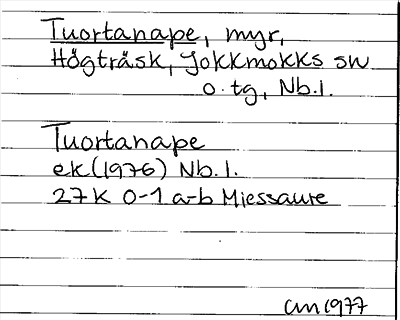 Tuortanape, myr,
Högträsk, Jokkmokks sn
o. tg, Nb.l.
Tuortanape
ek (1976) Nb.l.
27K 0-1 a-b Miessaure
um 1977